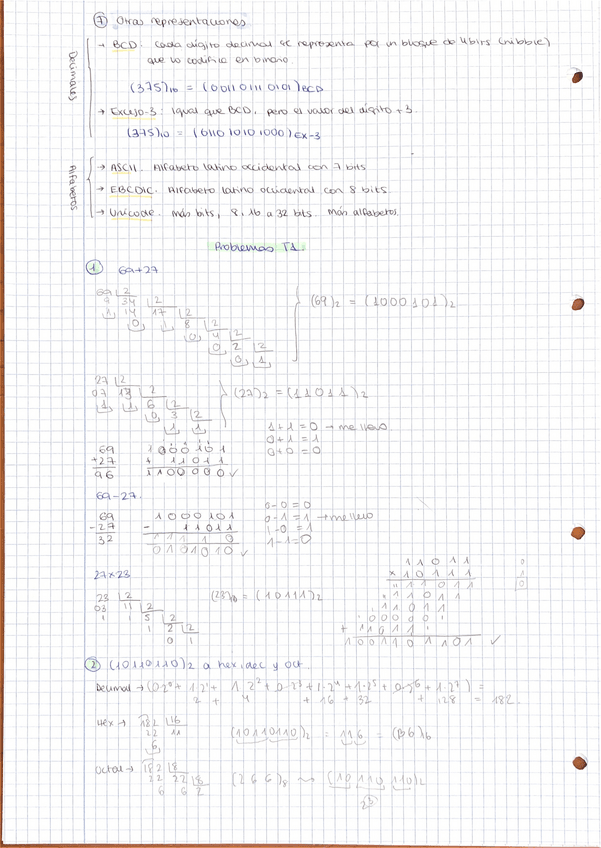 7 Otras representaciones
Decimales
→ BCD: Cada dígito decimal se representa por un bloque de 4 bits (nibble)
que lo codifica en binario.
(375)10 = (001101110101)BCD
→ Exceso-3: Igual que BCD, pero el valor del dígito +3.
(375)10 = (011010101000)EX-3
Alfabetos
→ ASCII. Alfabeto latino occidental con 7 bits
→ EBCDIC. Alfabeto latino occidental con 8 bits.
→ Unicode. más bits, 8, 16 a 32 bits. Más alfabetos.
Problemas T1.
1 69+27
69 2
9 34 2
1 14 17 2
0 1 8 2
0 4 2
0 2 2
0 1
(69)2 = (1000101)2
27 2
07 13 2
1 1 6 2
0 3 2
1 1
(27)2 = (11011)2
1+1=0 → me llevo
0+1=1
0+0=0
69 1000101
+27 + 11011
96 1100000 ✓
69-27.
0-0=0
0-1=1 → me llevo
1-0=1
1-1=0
69 1000101
-27 - 11011
32 1111 0
0101010 ✓
27x23
23 2
03 11 2
1 1 5 2
1 2 2
0 1
(23)10 = (10111)2
11011
x 10111
11011
11011
11011
00000
+ 11011
1001101101 ✓
2 (10110110)2 a hex, dec y oct.
Decimal → (0·2⁰ + 1·2¹ + 1·2² + 0·2³ + 1·2⁴ + 1·2⁵ + 0·2⁶ + 1·2⁷) =
2 + 4 + 16 + 32 + 128 = 182.
Hex → 182 16
22 11
6
(10110110)2 = 11 6 = (B6)16
Octal → 182 8
22 22 8
6 6 2
(266)8 ⇝ (10 110 110)2
2³